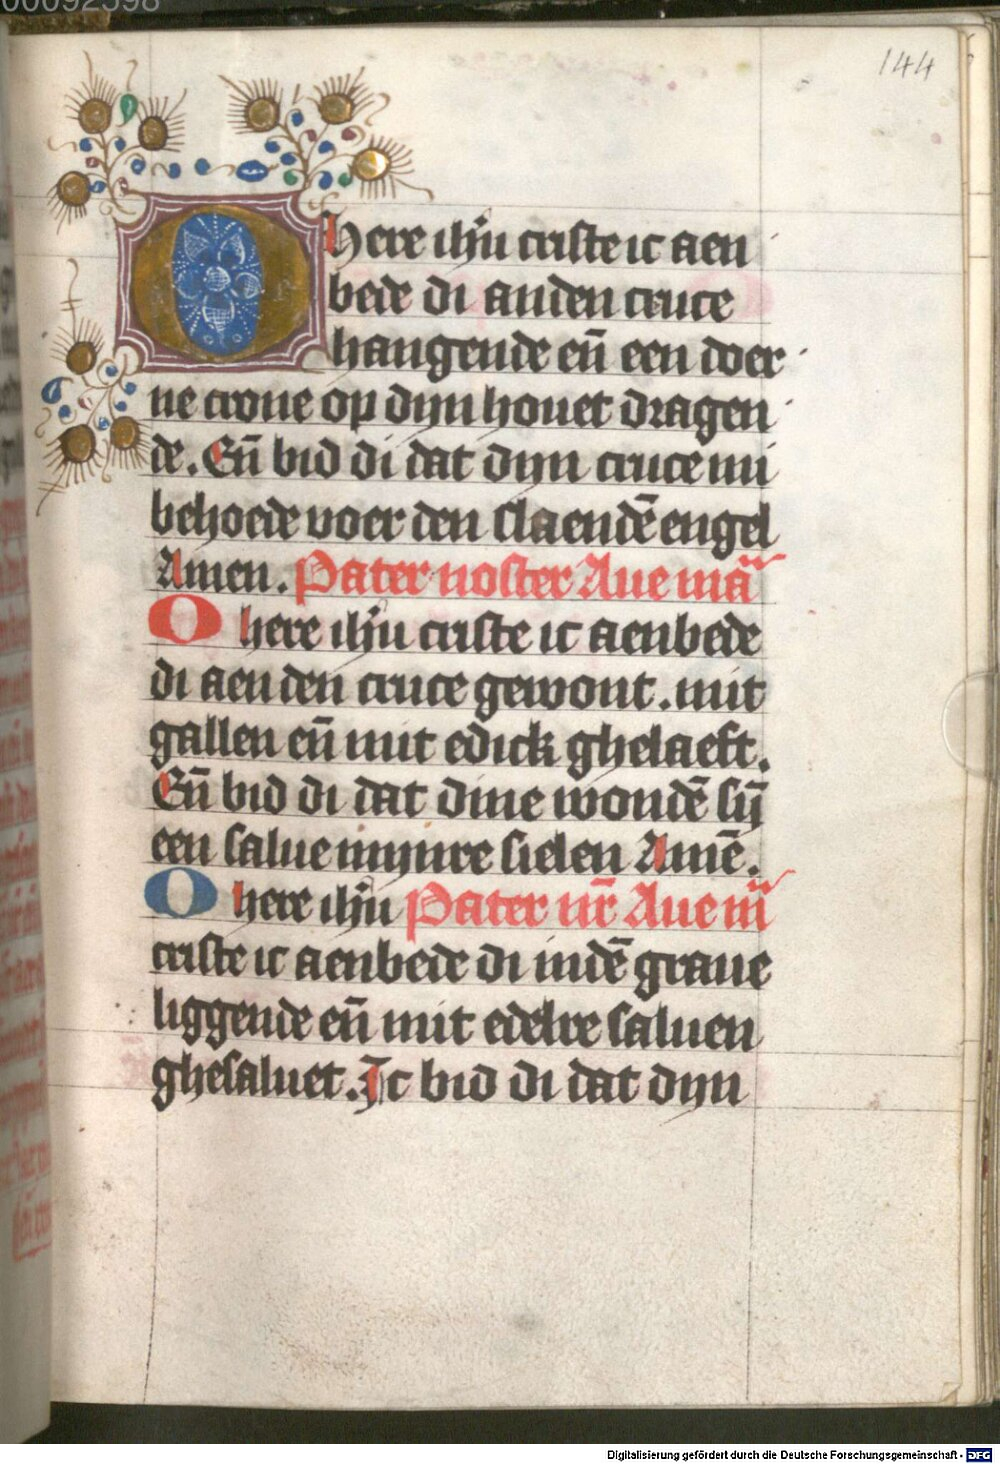 00092598
144
O here ihu criste ic aen
bede di anden cruce
hangende en̄ een doer
ne crone op dijn houet dragen
de. En̄ bid di dat dijn cruce mi
behoede voer den slaendē engel
Amen. Pater noster Aue mā
O here ihu criste ic aenbede
di aen den cruce gewont. mit
gallen en̄ mit edick ghelaeft.
En̄ bid di dat dine wondē sij̄
een salue mijnre sielen Amē.
O here ihu Pater nr̄ Aue m̄
criste ic aenbede di indē graue
liggende en̄ mit edelre saluen
ghesaluet. Ic bid di dat dijn
Digitalisierung gefördert durch die Deutsche Forschungsgemeinschaft - DFG